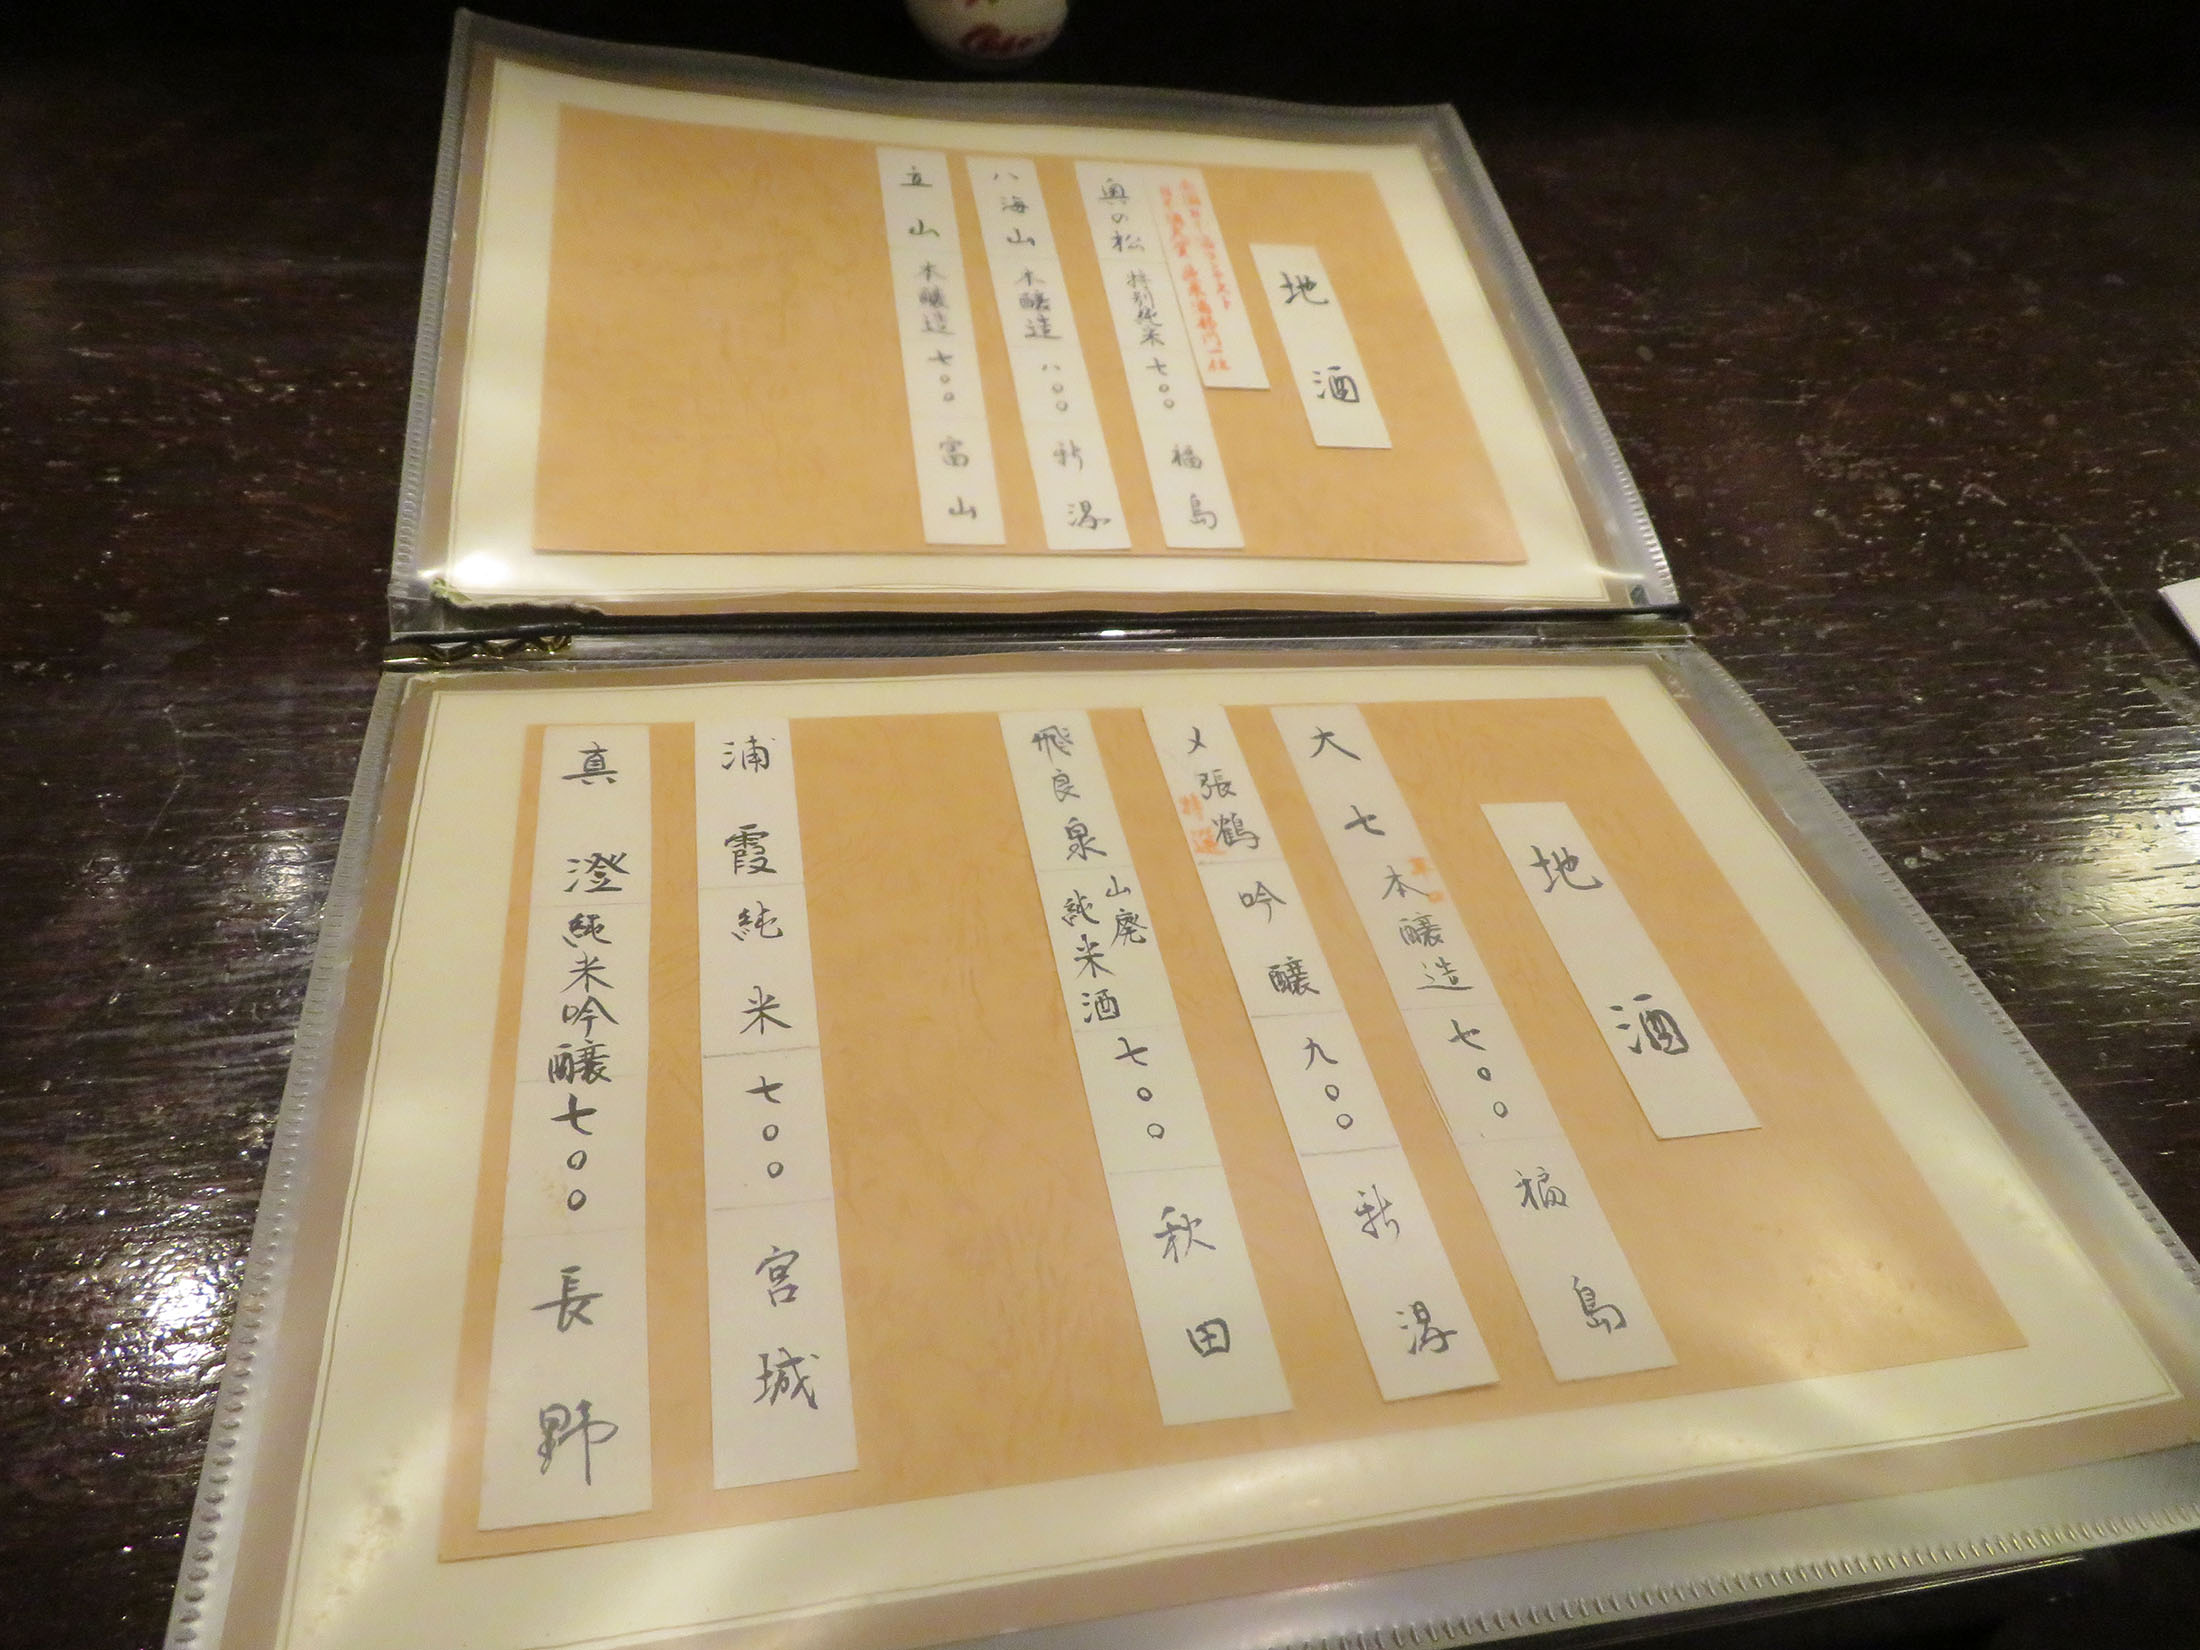 地酒
奥の松 特別純米 七〇〇 福島
八海山 本醸造 八〇〇 新潟
立山 本醸造 七〇〇 富山
地酒
大七 辛口 本醸造 七〇〇 福島
〆張鶴 特選 吟醸 九〇〇 新潟
飛良泉 山廃 純米酒 七〇〇 秋田
浦霞 純米 七〇〇 宮城
真澄 純米吟醸 七〇〇 長野